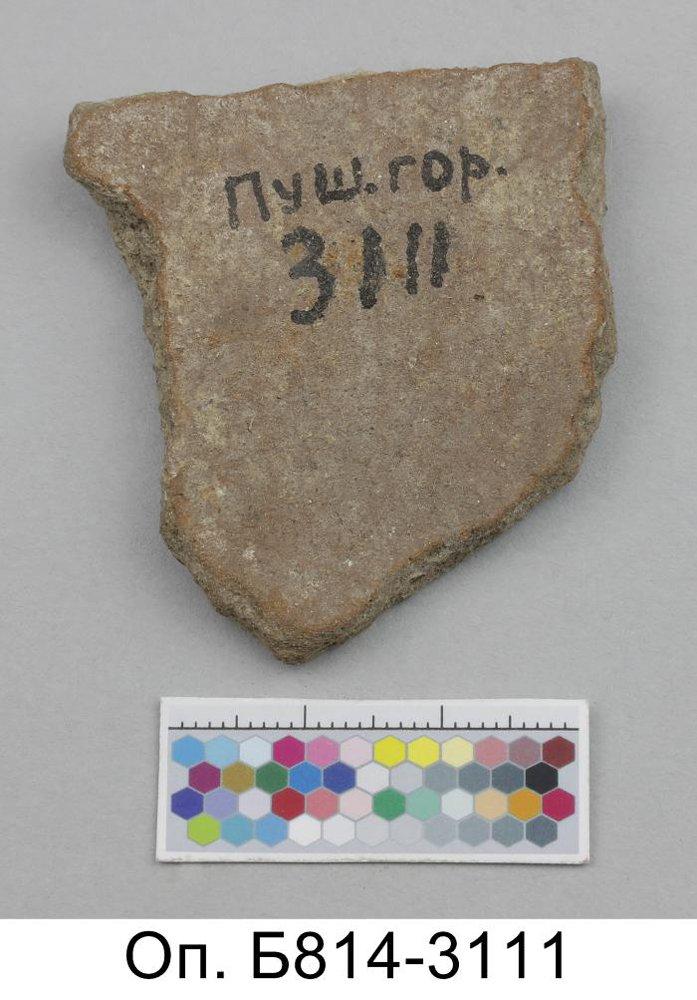 Пуш.гор.
3111
Оп. Б814-3111